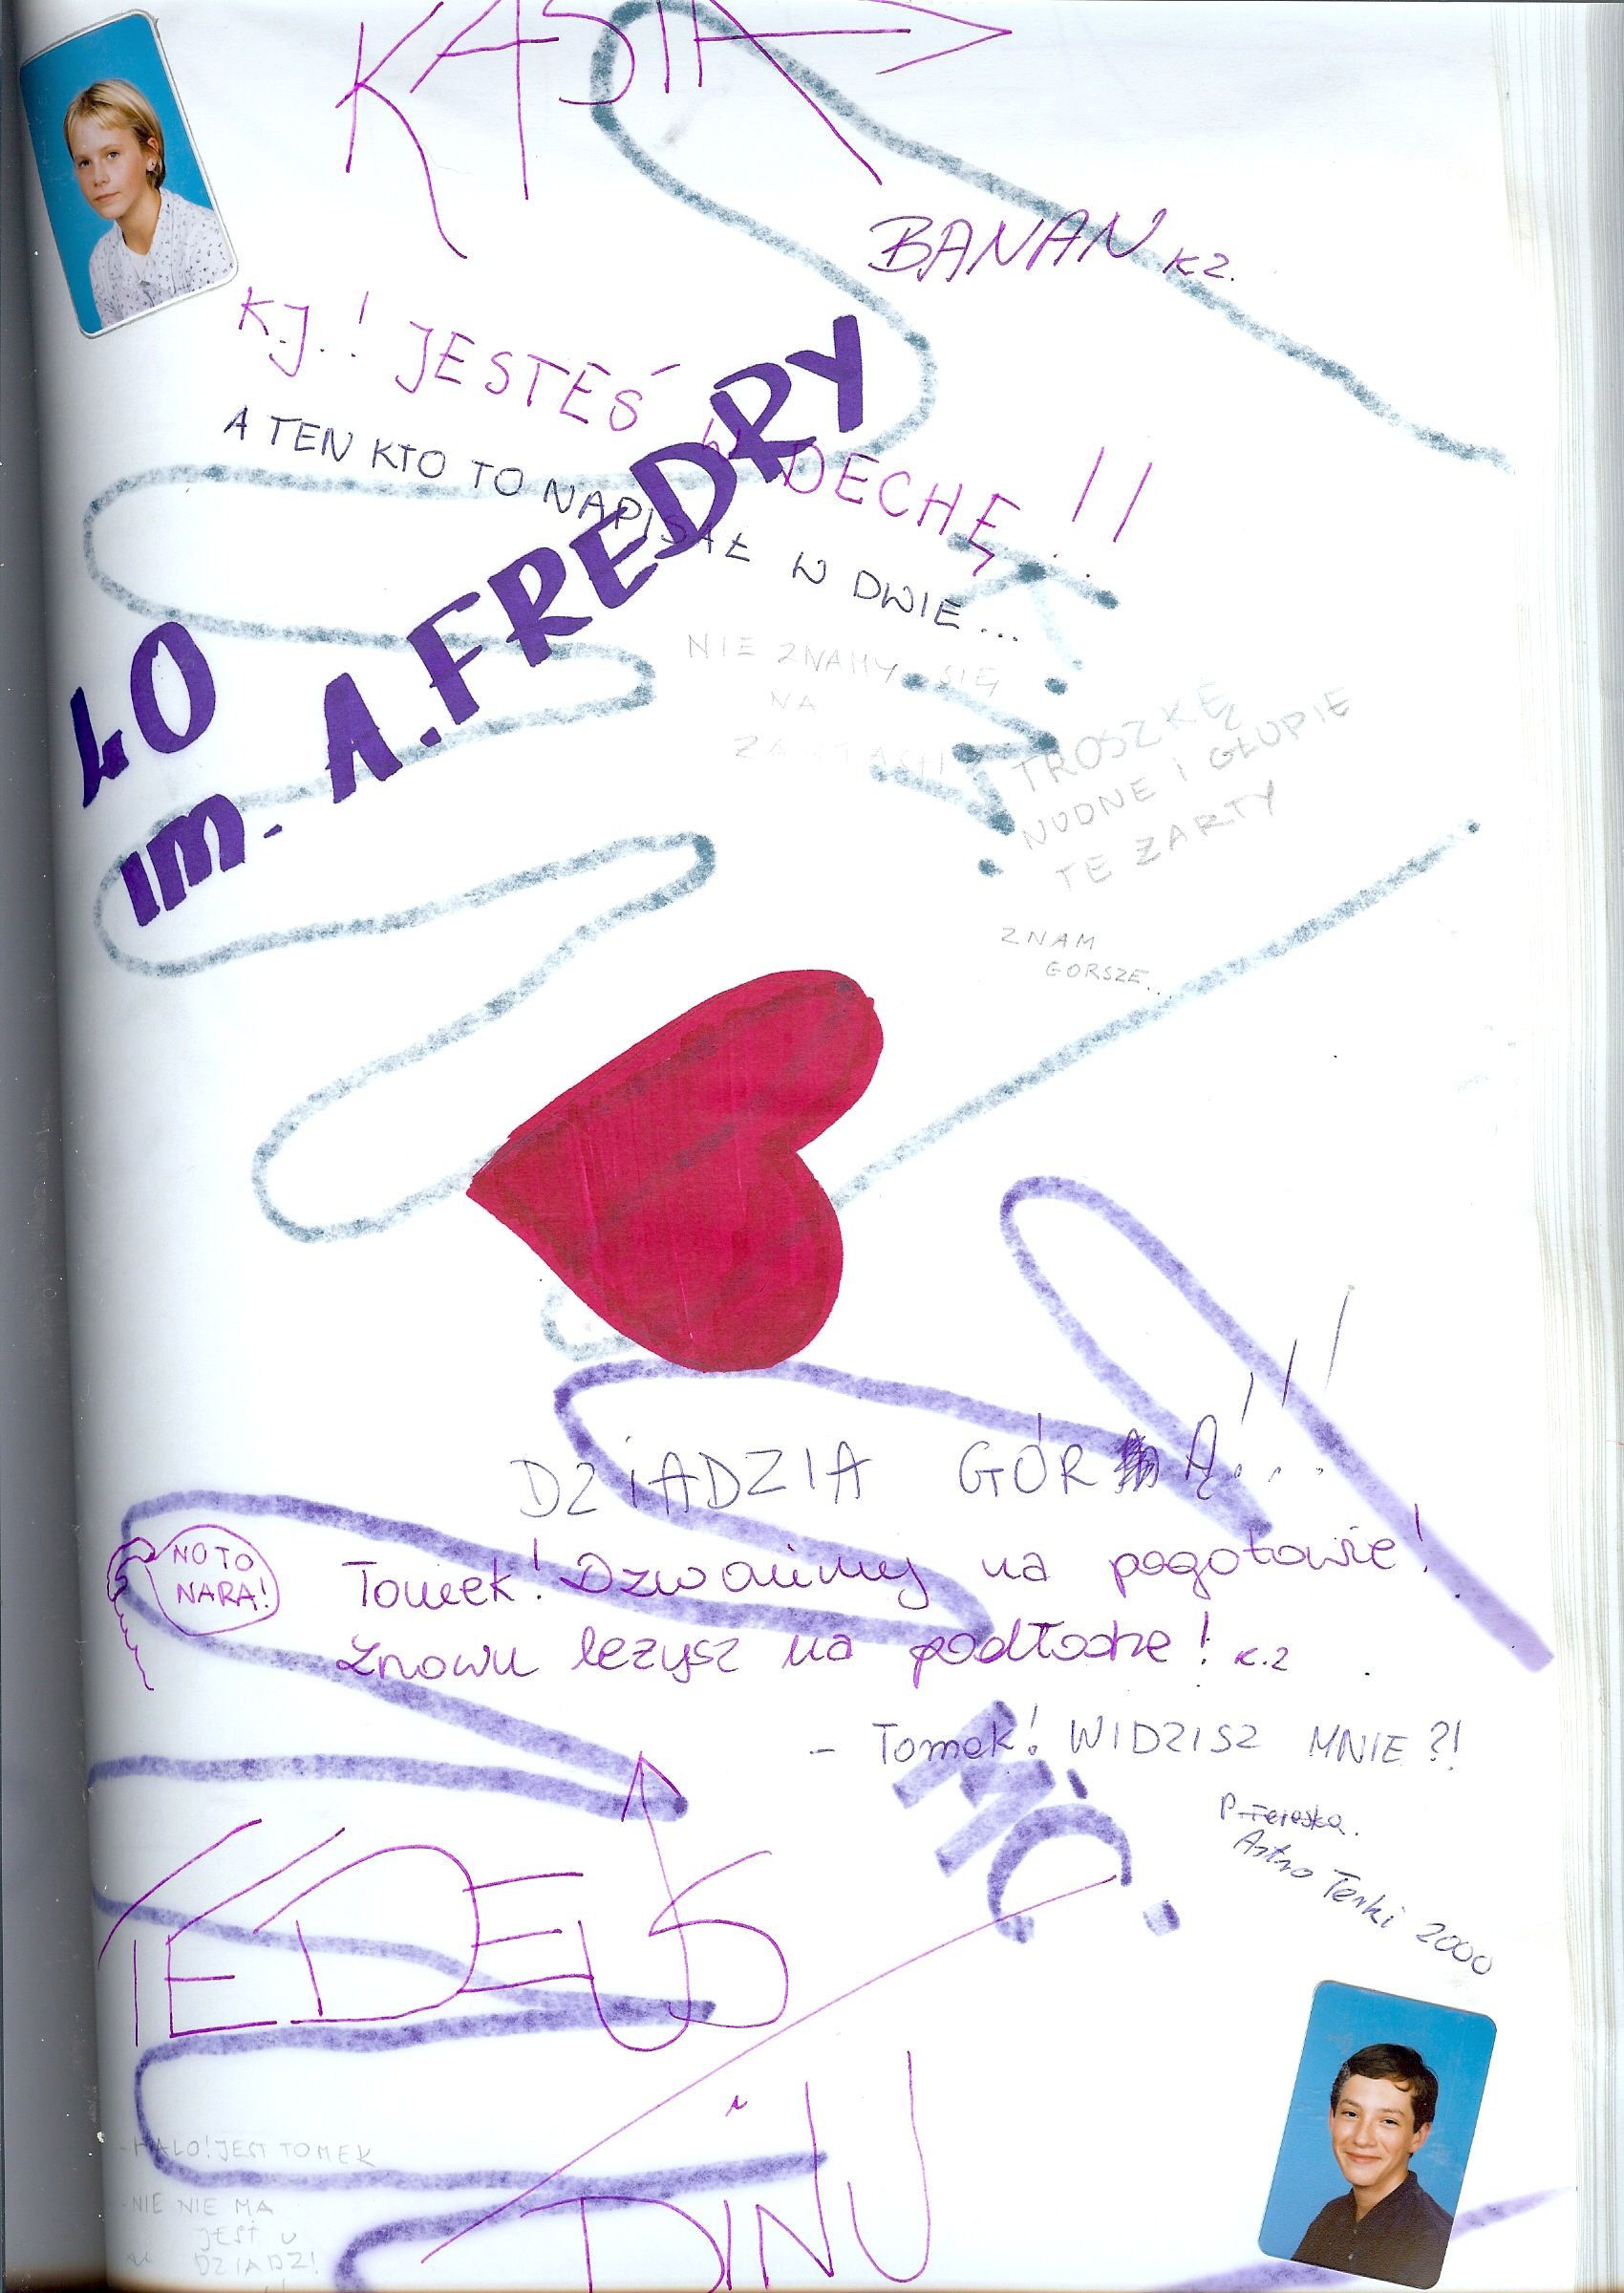 KASIA
BANAN K2.
K.J.! JESTEŚ
DECHĘ!!
A TEN KTO TO NAPISAŁ W DWIE...
LO
IM. A. FREDRY
NIE ZNAMY SIĘ
NA
TROSZKĘ
NUDNE i GŁUPIE
TE ŻARTY
ZNAM
GORSZE...
K.J.
DZiADZIA GÓRĄ!!!
NO TO
NARA!
Tomek! Dzwonimy na pogotowie!
Znowu leżysz na podłodze! K.2
- Tomek! WIDZISZ MNIE?!
MĆ.
Astro Terki 2000
TEDEUS
i
DINU
- HALO! JEST TOMEK
- NIE NIE MA
JEST U
DZIADZI!